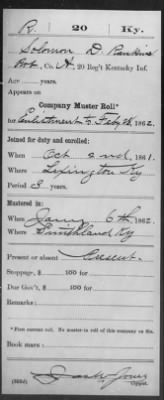 R. 20 Ky.
Solomon D. Rankins
Pvt., Co. A, 20 Reg't Kentucky Inf.
Age years.
Appears on
Company Muster Roll*
for Enlistment to Feby 28, 1862.
Joined for duty and enrolled:
When Oct 2nd, 1861.
Where Lexington Ky
Period 3 years.
Mustered in:
When Jany 6th, 1862.
Where Smithland Ky
Present or absent Present.
Stoppage, $ 100 for
Due Gov't, $ 100 for
Remarks:
Book mark:
Copyist.